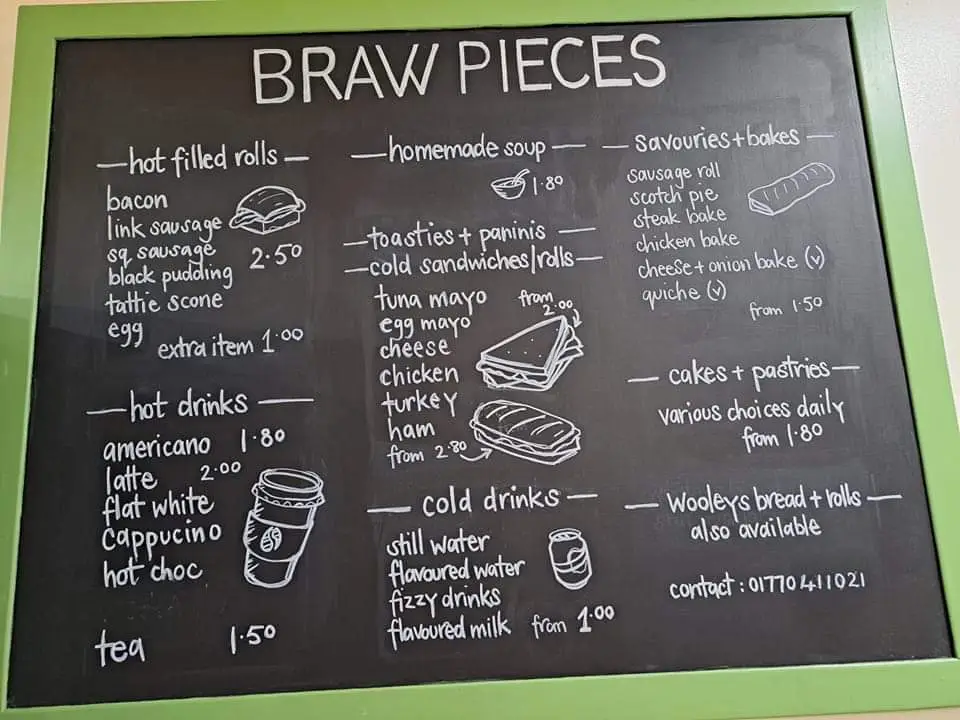 BRAW PIECES
hot filled rolls
bacon
link sausage
sq sausage
black pudding 2.50
tattie scone
egg
extra item 1.00
hot drinks
americano 1.80
latte 2.00
flat white
cappucino
hot choc
tea 1.50
homemade soup
1.80
toasties + paninis
cold sandwiches/rolls
tuna mayo from
2.00
egg mayo
cheese
chicken
turkey
ham
from 2.80
cold drinks
still water
flavoured water
fizzy drinks
flavoured milk from 1.00
savouries + bakes
sausage roll
scotch pie
steak bake
chicken bake
cheese + onion bake (v)
quiche (v)
from 1.50
cakes + pastries
various choices daily
from 1.80
Wooleys bread + rolls
also available
contact : 01770 411021